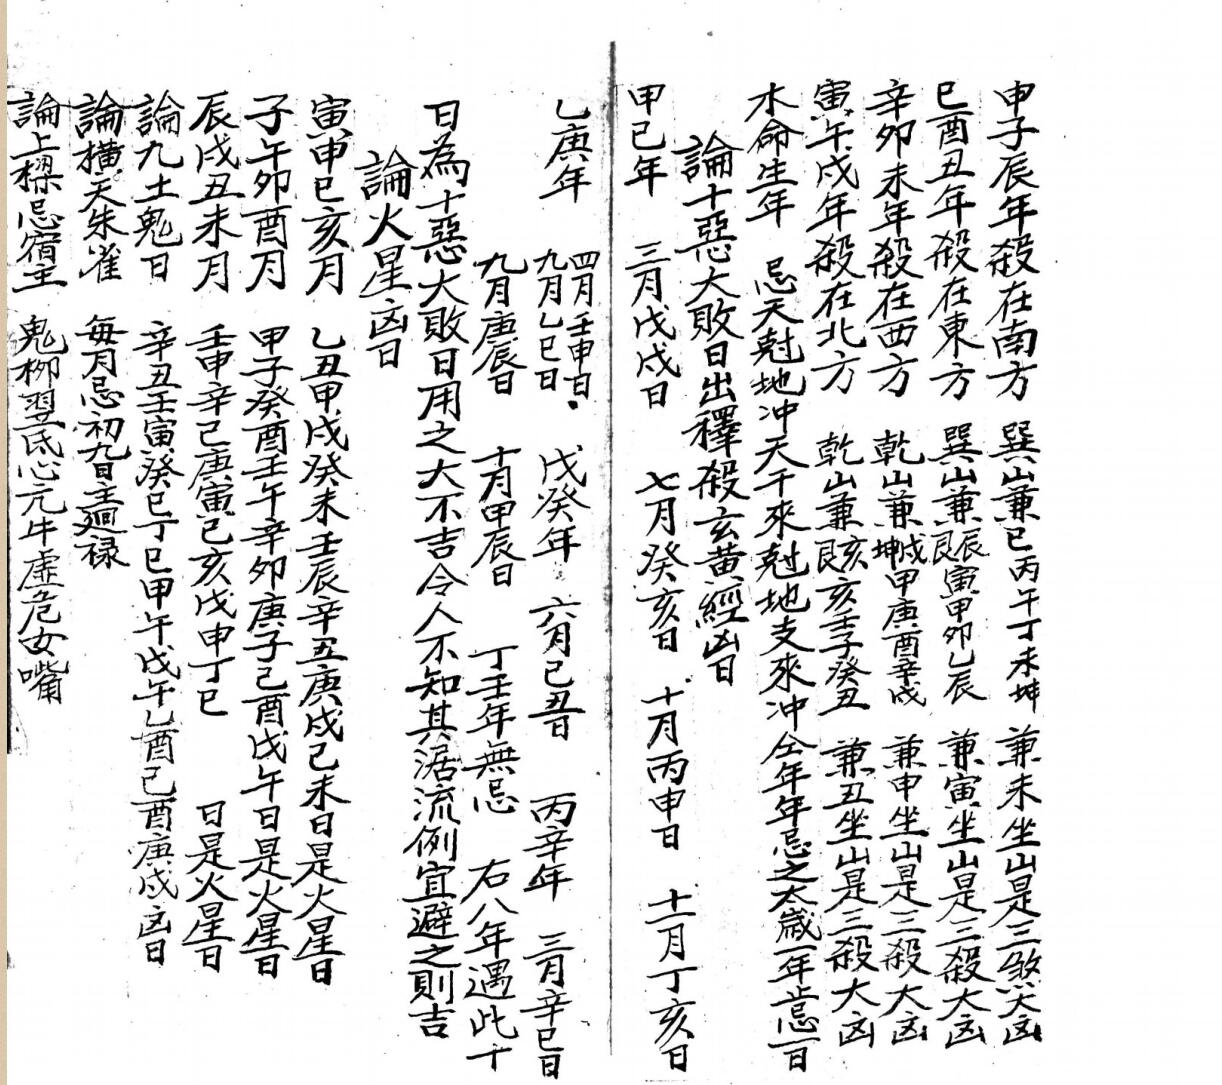 申子辰年殺在南方 巽山兼巳丙午丁未坤 兼未坐山是三煞大凶
巳酉丑年殺在東方 巽山兼辰艮寅甲卯乙辰 兼寅坐山是三殺大凶
辛卯未年殺在西方 乾山兼戍坤甲庚酉辛戍 兼申坐山是三殺大凶
寅午戍年殺在北方 乾山兼亥艮亥壬子癸丑 兼丑坐山是三殺大凶
木命生年 忌天尅地冲天干來尅地支來冲仝年年忌之太歲一年止忌一日
論十惡大敗日出釋殺玄黄經凶日
甲已年 三月戊戍日 七月癸亥日 十月丙申日 十一月丁亥日
乙庚年 四月壬申日 九月乙巳日 戊癸年 六月已丑日 丙辛年 三月辛巳日
九月庚辰日 十月甲辰日 丁壬年無忌 右八年遇此十
日為十惡大敗日用之大不吉令人不知其涺流例宜避之則吉
論火星凶日
寅申巳亥月 乙丑甲戍癸未壬辰辛丑庚戍己未日是火星日
子午卯酉月 甲子癸酉壬午辛卯庚子己酉戊午日是火星日
辰戍丑未月 壬申辛巳庚寅己亥戊申丁巳 日是火星日
論九土鬼日 辛丑壬寅癸巳丁巳甲午戊午乙酉已酉庚戍凶日
論横天朱雀 每月忌初九日主廻禄
論上樑忌宿主 鬼柳翌氐心元牛虛危女嘴